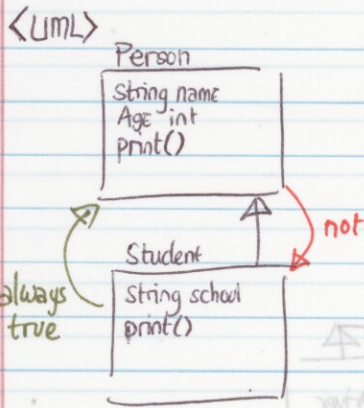 <UML>
Person
String name
Age int
print()
not
Student
always
true
String school
print()